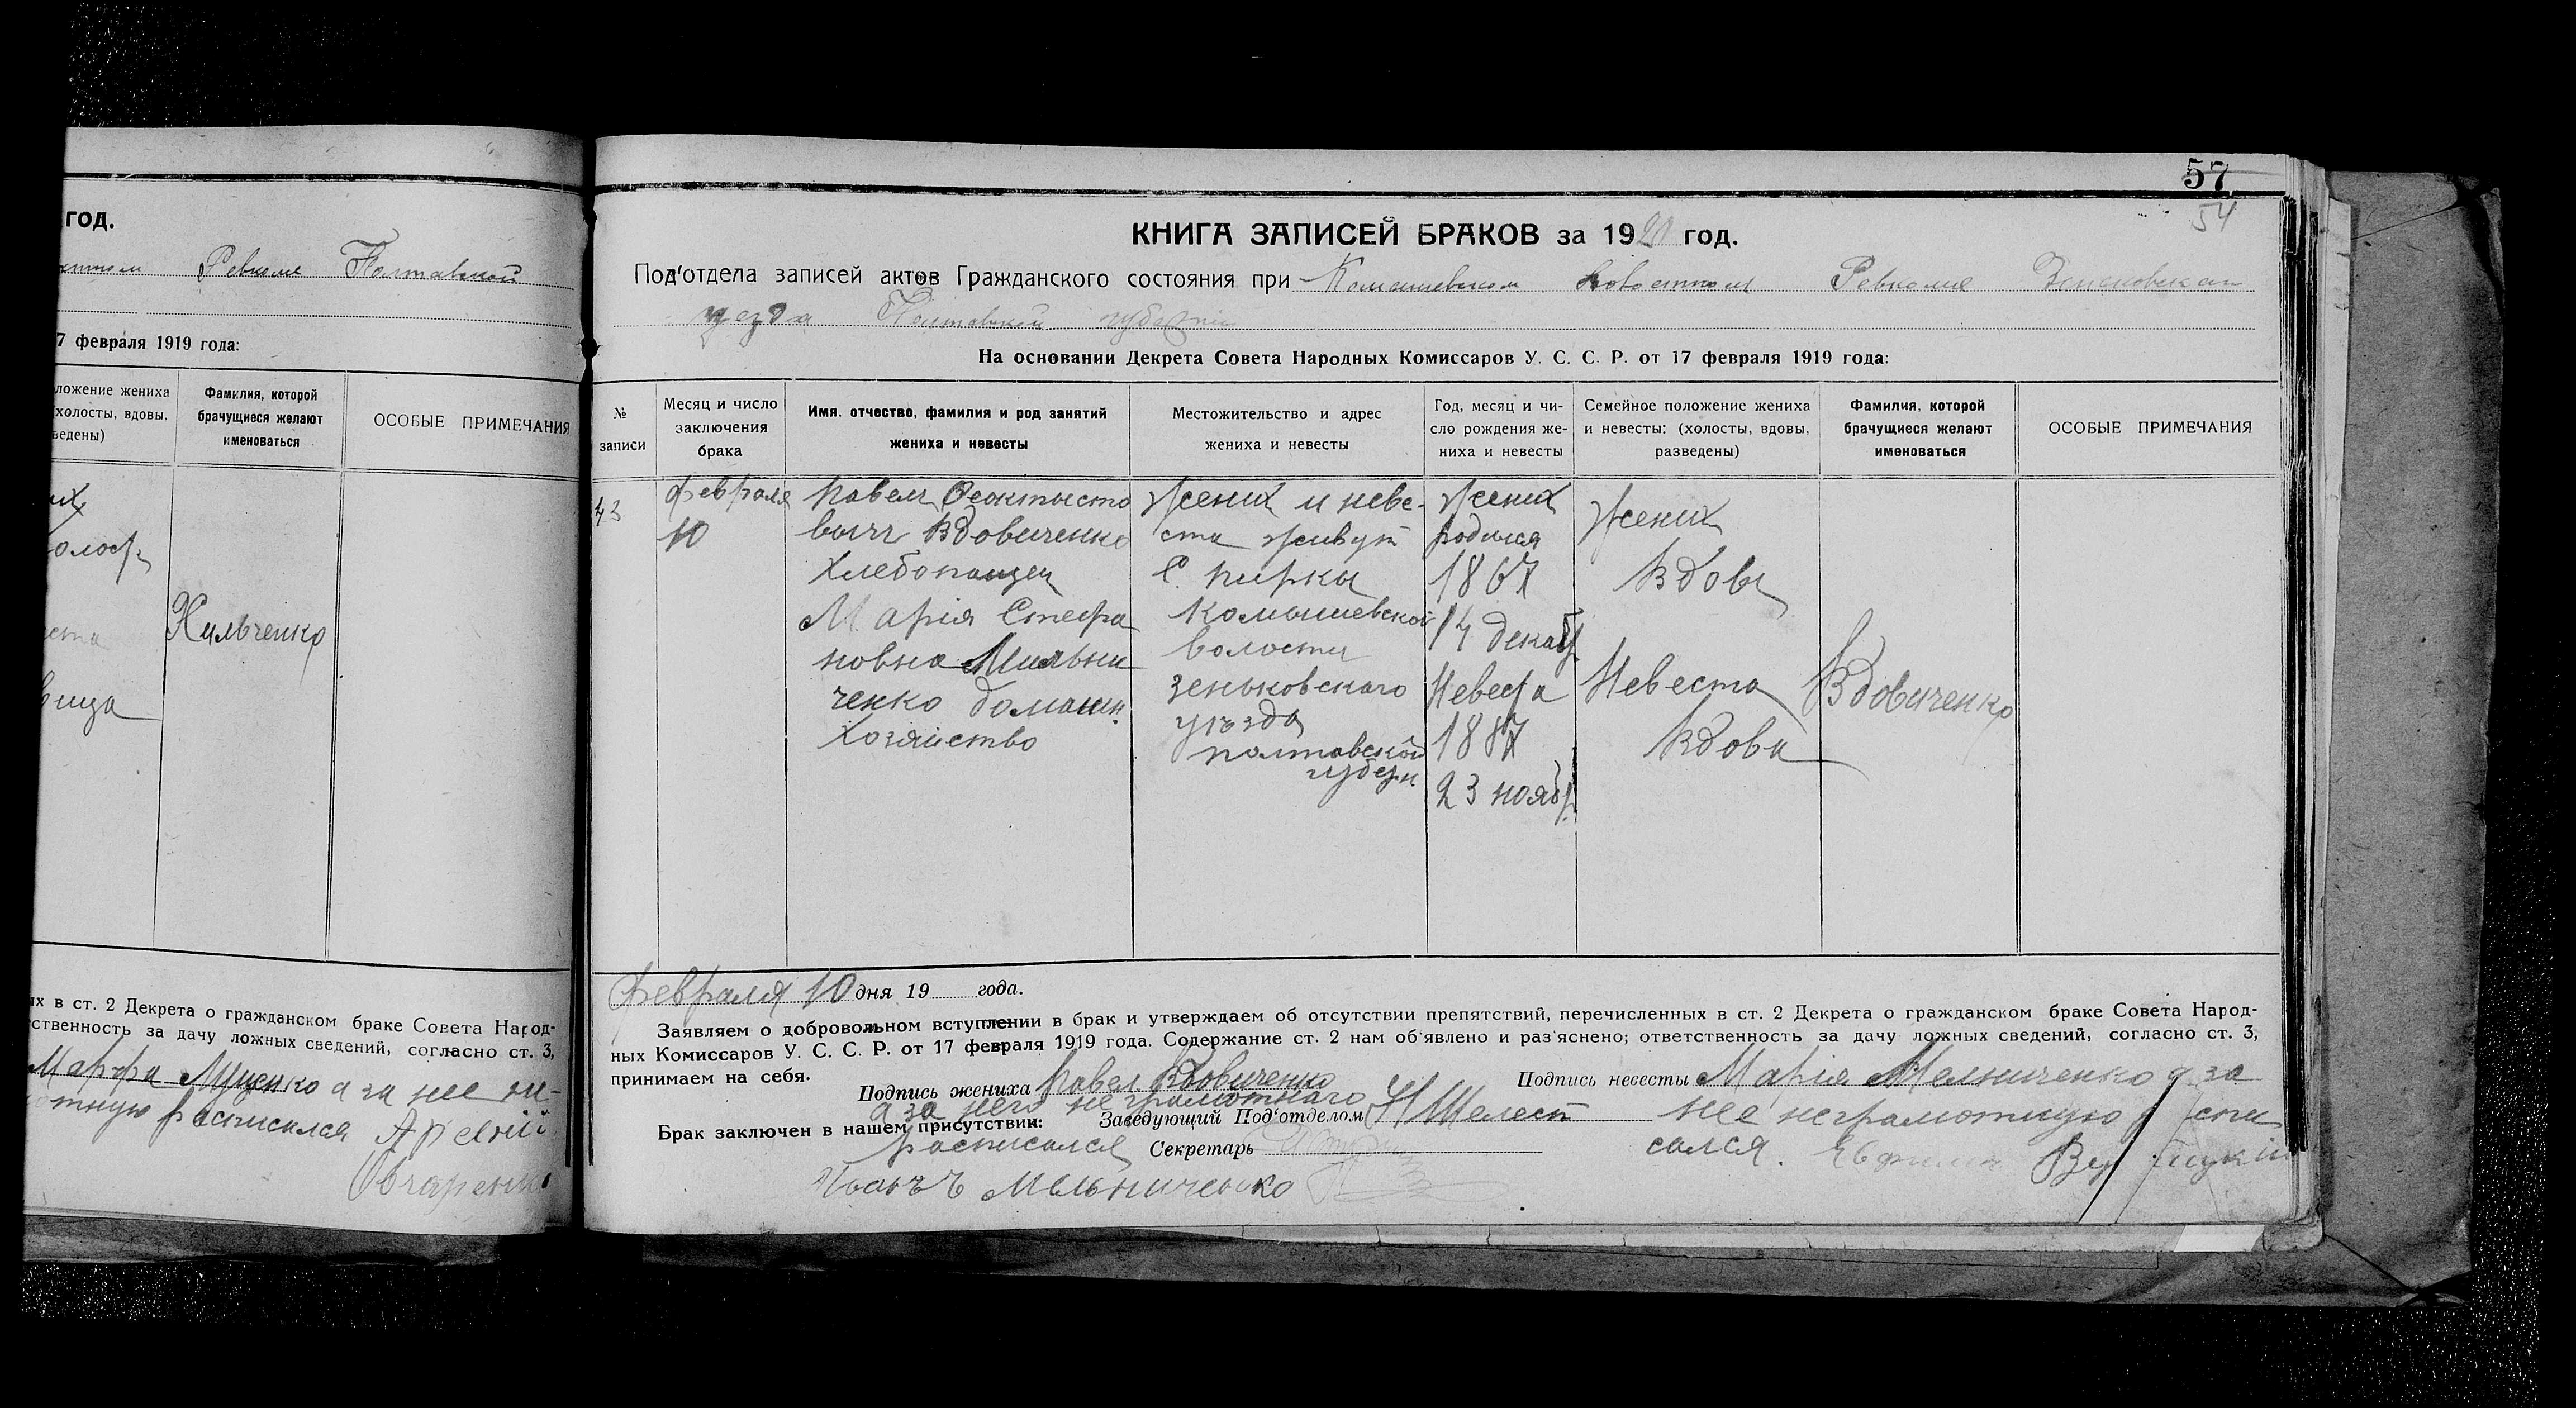 год.
Ревкоме Полтавской
7 февраля 1919 года:
ложение жениха
(холосты, вдовы,
ведены)
Фамилия, которой
брачущиеся желают
именоваться
ОСОБЫЕ ПРИМЕЧАНИЯ
их
олост
ста
вица
Хильченко
ых в ст. 2 Декрета о гражданском браке Совета Народ-
ственность за дачу ложных сведений, согласно ст. 3,
Марфа Луценко а за нее не-
отную росписался
Овчаренко
57
54
КНИГА ЗАПИСЕЙ БРАКОВ за 19 год.
Под'отдела записей актов Гражданского состояния при Комышевском Волостном Ревкоме Зеньковскаго
уезда Полтавской губернии
На основании Декрета Совета Народных Комиссаров У. С. С. Р. от 17 февраля 1919 года:
№
записи
Месяц и число
заключения
брака
Имя, отчество, фамилия и род занятий
жениха и невесты
Местожительство и адрес
жениха и невесты
Год, месяц и чи-
сло рождения же-
ниха и невесты
Семейное положение жениха
и невесты: (холосты, вдовы,
разведены)
Фамилия, которой
брачущиеся желают
именоваться
ОСОБЫЕ ПРИМЕЧАНИЯ
43
февраля
10
Павел Феоктисто
вичг Вдовиченко
Хлебопашец
Марія Стефа
новна Мильни
ченко домашн.
Хозяйство
Жених и неве-
ста живут
С. Пирки
Комышевской
волости
Зеньковскаго
уѣзда
полтавской
губерн.
Жених
родился
1867
14 декаб
Невеста
1887
23 ноябр.
Жених
Вдовц
Невеста
Вдова
Вдовиченко
февраля 10 дня 19 года.
Заявляем о добровольном вступлении в брак и утверждаем об отсутствии препятствий, перечисленных в ст. 2 Декрета о гражданском браке Совета Народ-
ных Комиссаров У. С. С. Р. от 17 февраля 1919 года. Содержание ст. 2 нам об'явлено и раз'яснено; ответственность за дачу ложных сведений, согласно ст. 3,
принимаем на себя.
Подпись жениха Павел Вдовиченко
а за него неграмотнаго
росписался
Иванъ Мельниченко
Подпись невесты Марія Мелниченко а за
нее неграмотную роспи
сался.
Брак заключен в нашем присутствии: Заведующий Под'отделом Шелест
Секретарь